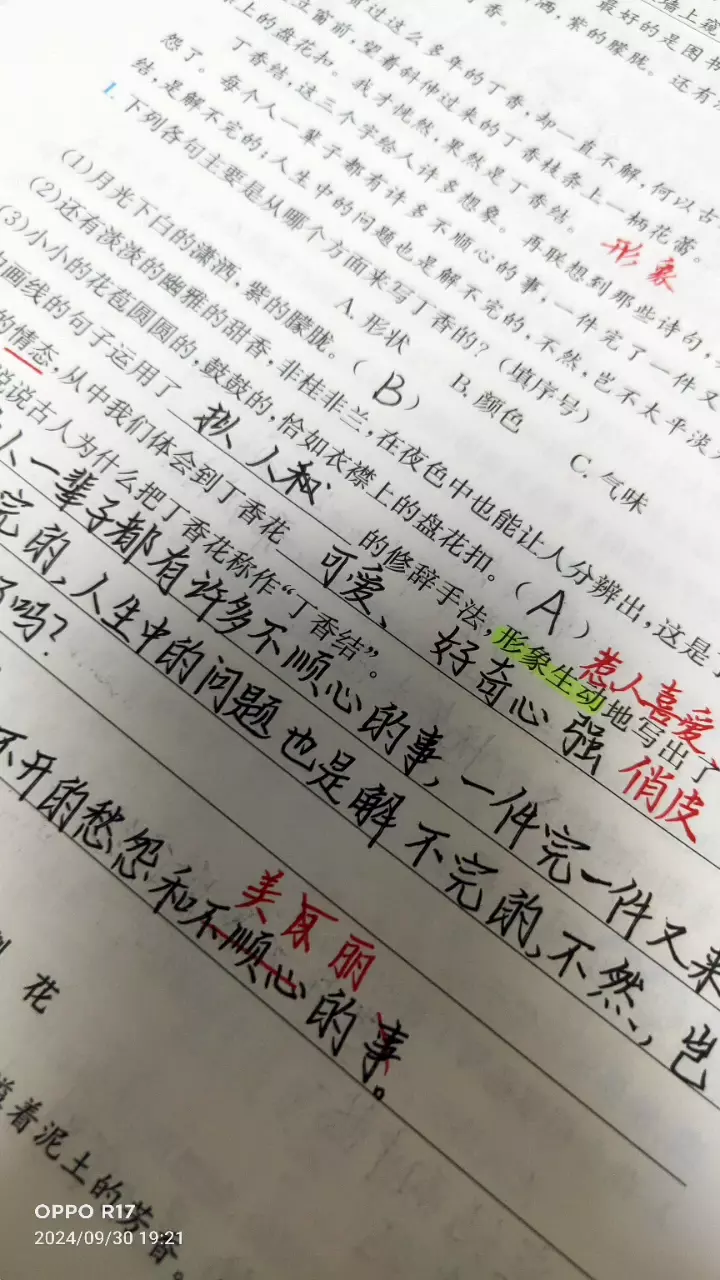 墙上窥
洒,紫的朦胧。还有淡
看过这么多年的丁香,却一直不解,何以古
豆窗前,望着斜伸过来的丁香枝条上一柄花蕾。
上的盘花扣。我才恍然,果然是丁香结。
形象
丁香结,这三个字给人许多想象。再联想到那些诗句,
怨了。每个人一辈子都有许多不顺心的事,一件完了一件又
结,是解不完的;人生中的问题也是解不完的,不然,岂不太平淡
1.下列各句主要是从哪个方面来写丁香的?(填序号)
A.形状 B.颜色 C.气味
(1)月光下白的潇洒,紫的朦胧。(B)
(2)还有淡淡的幽雅的甜香,非桂非兰,在夜色中也能让人分辨出,这是
(3)小小的花苞圆圆的,鼓鼓的,恰如衣襟上的盘花扣。(A)
画线的句子运用了 拟人和 的修辞手法,形象生动地写出了
惹人喜爱
的情态,从中我们体会到丁香花 可爱、好奇心强 俏皮
说说古人为什么把丁香花称作“丁香结”。
人一辈子都有许多不顺心的事,一件完一件又来
完的,人生中的问题也是解不完的,不然,岂
了吗?
美丽
不开的愁怨和不顺心的事。
花
着泥土的芳香。
OPPO R17
2024/09/30 19:21